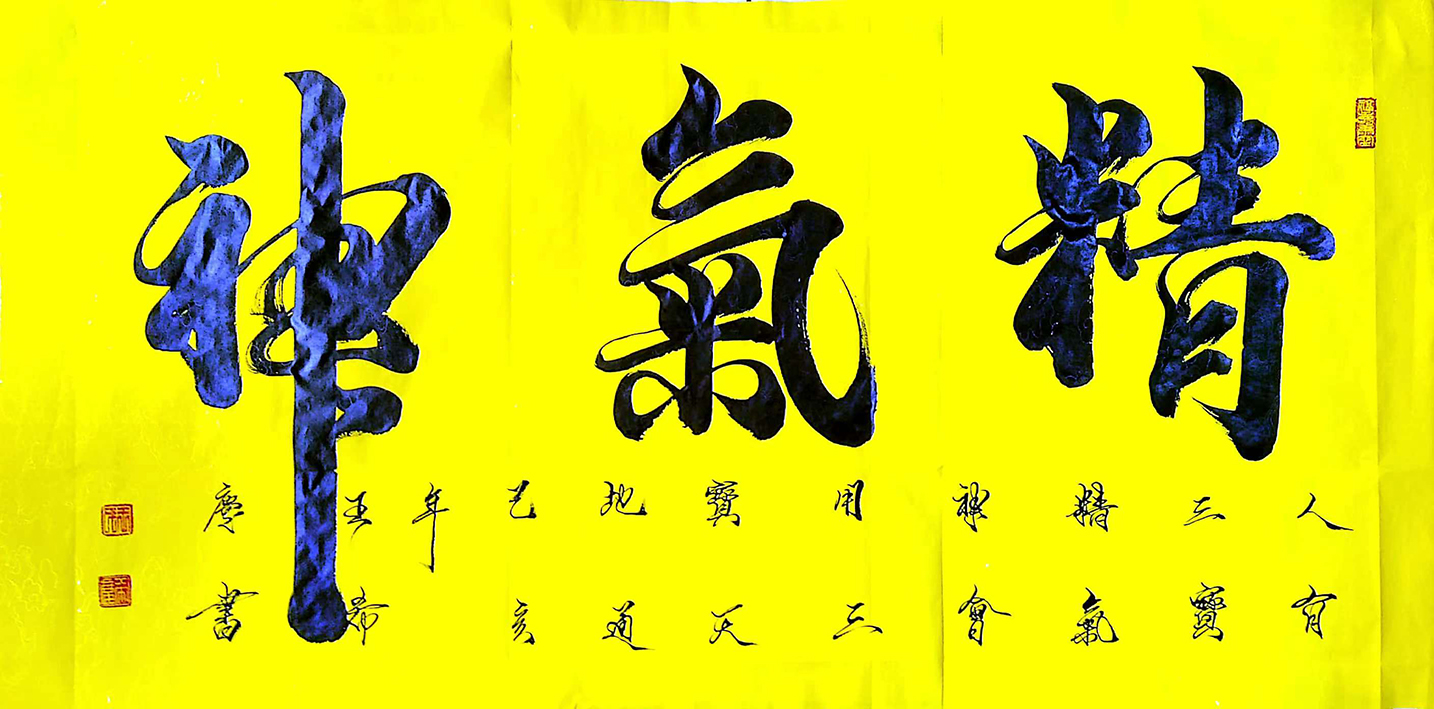 精氣神
人有
三寶
精氣
神會
用三
寶天
地通
己亥
年
王希
慶書